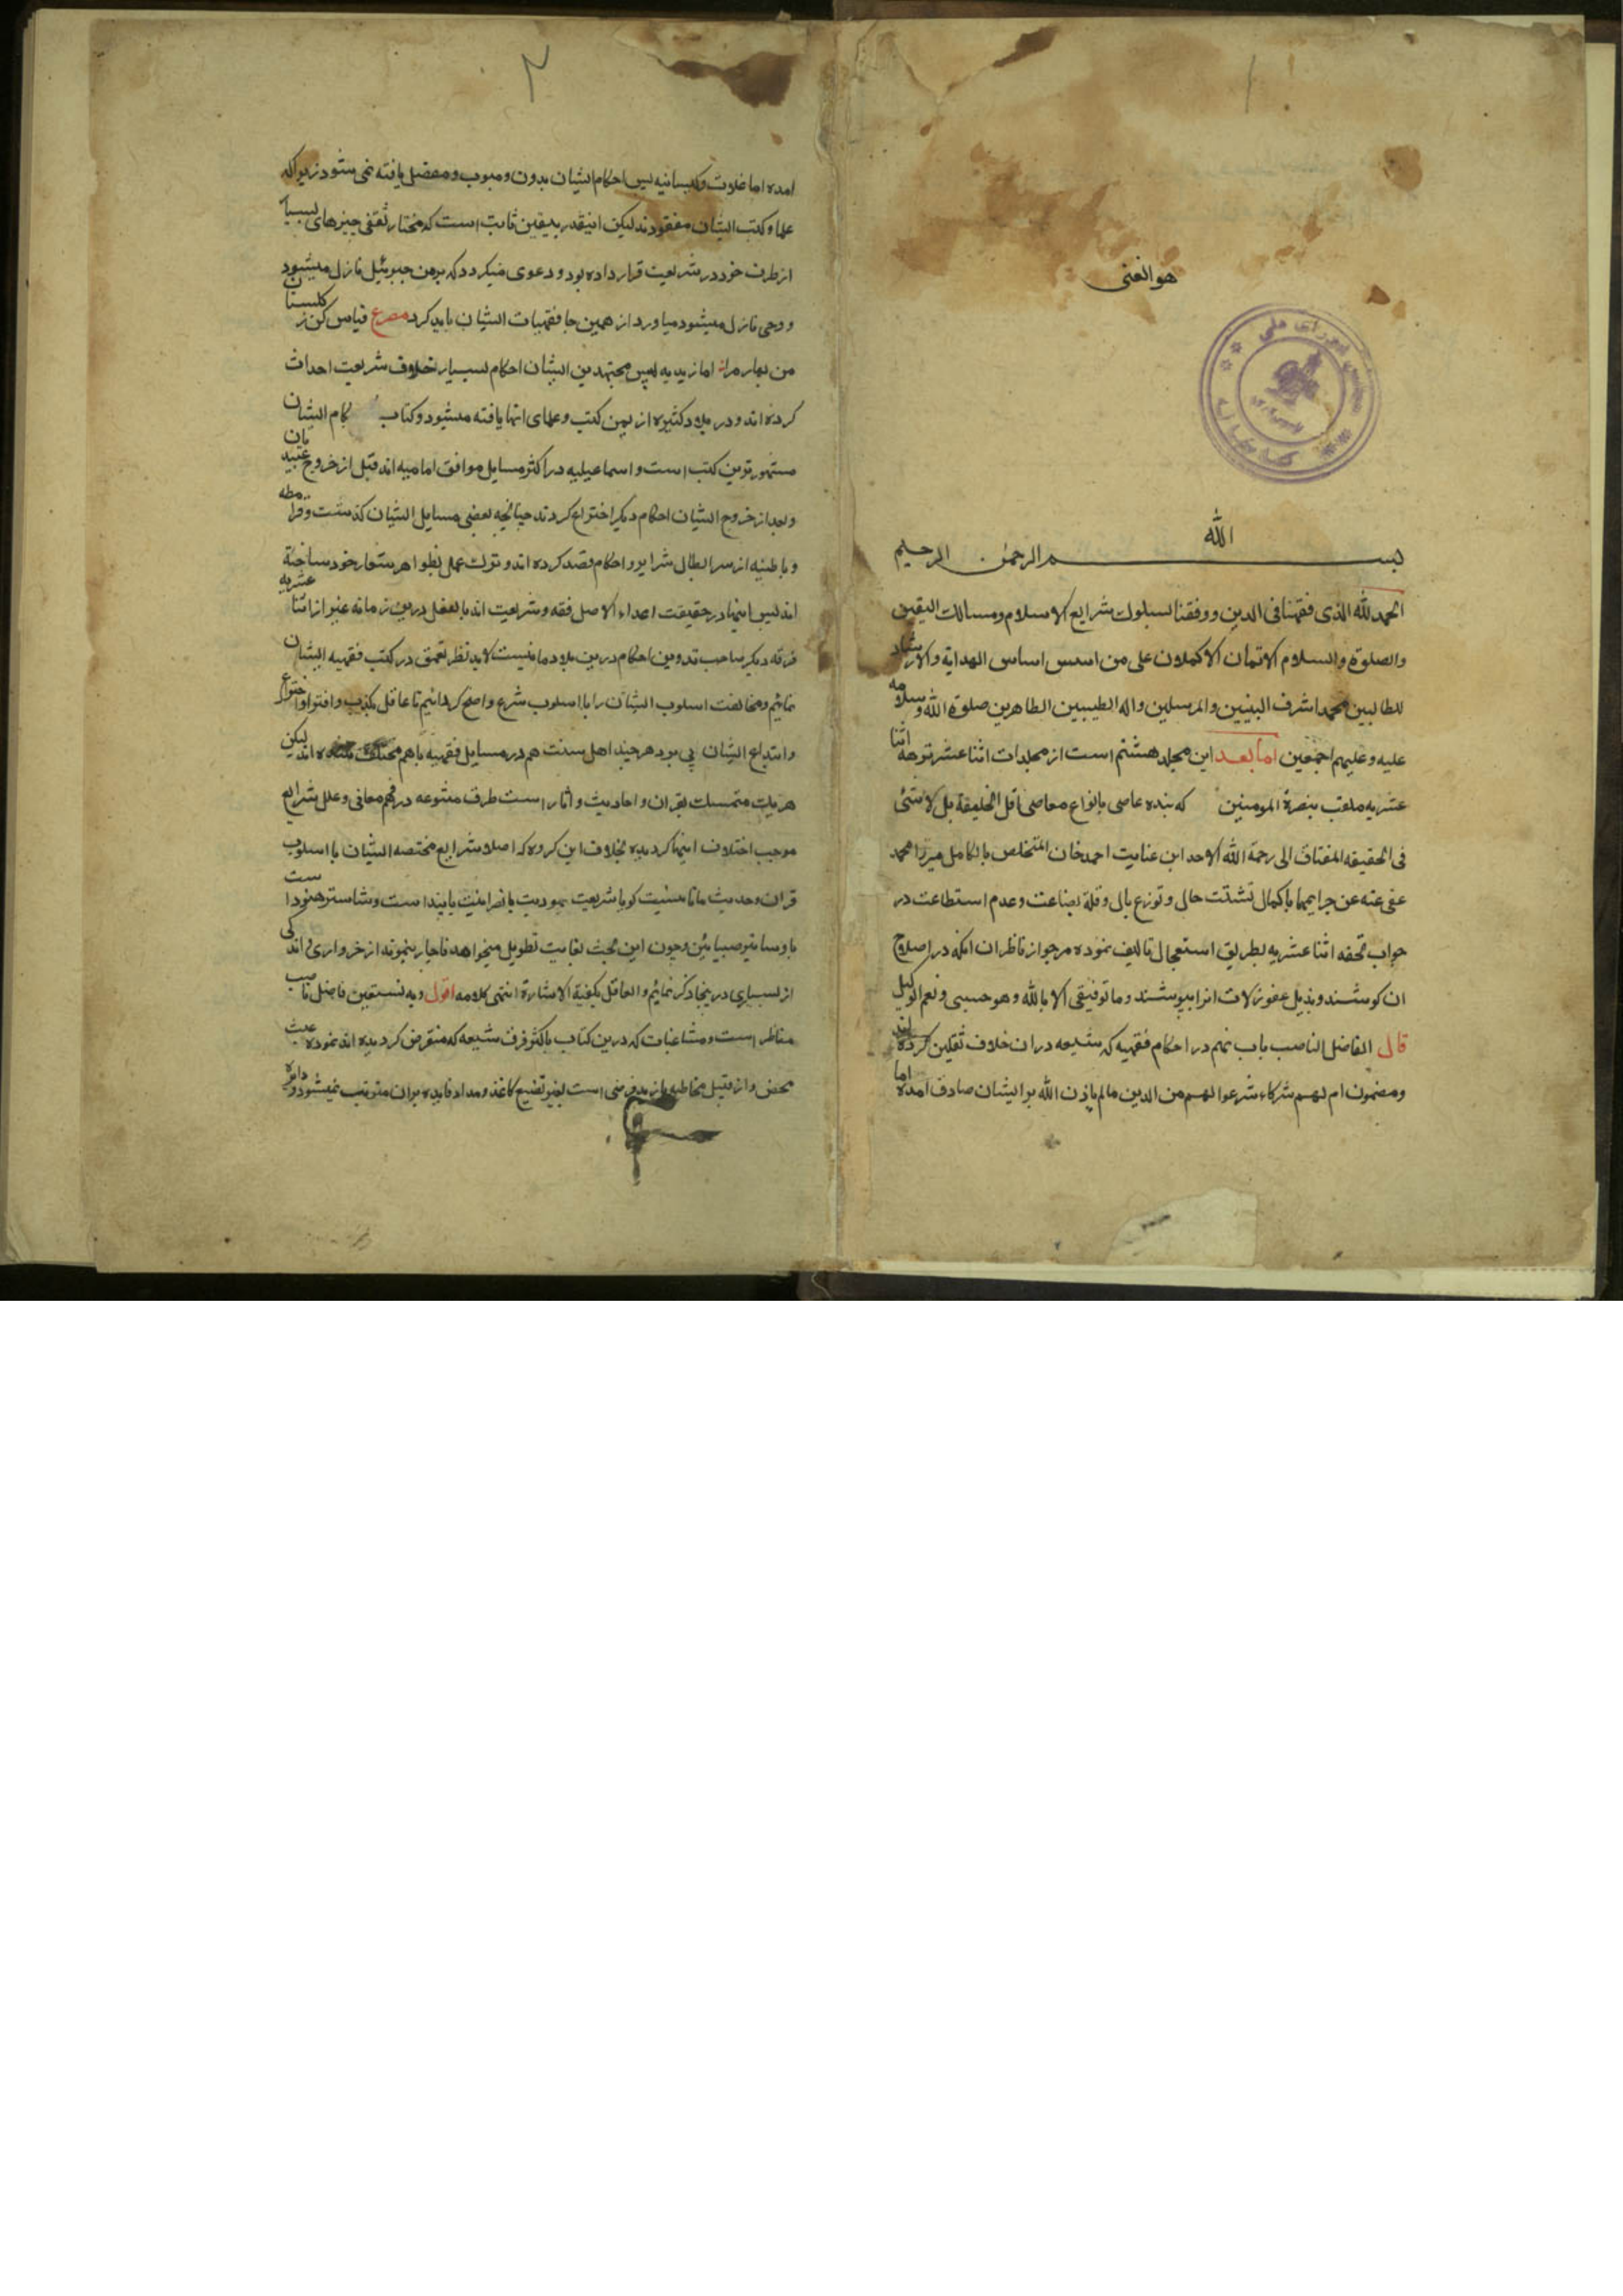 ۱
هو الغنی
الله
بسم الرحمن الرحیم
الحمد لله الذی فقهنا فی الدین ووفقنا لسلوک شرایع الاسلام ومسالک الیقین
والصلوة والسلام الاتمان الاکملان علی من اسس اساس الهدایة والارشاد
للطالبین محمد اشرف النبیین والمرسلین واله الطیبین الطاهرین صلوة الله وسلامه
علیه وعلیهم اجمعین اما بعد این مجلد هشتم است از مجلدات اثنا عشر نزهه اثنا
عشریه ملقب بنصرة المومنین که بنده عاصی بانواع معاصی اقل الخلیقة بل لا شئ
فی الحقیقه المفتاق الی رحمة الله الاحد ابن عنایت احمد خان المتخلص بالکامل میرزا محمد
عفی عنه عن جرایمهما با کمال تشتت حال و توزع بال و قلة بضاعت و عدم استطاعت در
جواب تحفه اثنا عشریه بطریق استعجال تالیف نموده مرجو از ناظران انکه در اصلاح
ان کوشند و بذیل عفو زلات انرا بپوشند وما توفیقی الا بالله وهو حسبی ونعم الوکیل
قال الفاضل الناصب باب نهم در احکام فقهیه که شیعه در ان خلاف ثقلین کرده اند
ومضمون ام لهم شرکاء شرعوا لهم من الدین ما لم یاذن الله بر ایشان صادق امده اما
۲
امده اما غلات وکیسانیه پس احکام ایشان مدون و مبوب و مفصل یافته نمی شود زیرا که
علما و کتب ایشان مفقودند لیکن اینقدر بیقین ثابت است که مختار ثقفی چیزهای بسیار
از طرف خود در شریعت قرار داده بود و دعوی میکرد که بر من جبرئیل نازل میشود
و وحی نازل میشود میاورد از همین جا فقهیات ایشان باید کرد مصرع قیاس کن ز کلستان
من بهار مرا اما زیدیه پس مجتهدین ایشان احکام بسیار خلاف شریعت احداث
کرده اند و در بلاد کثیره از یمن کتب و علمای انها یافته میشود وکتاب احکام ایشان
مشهورترین کتب است و اسماعیلیه در اکثر مسایل موافق امامیه اند قبل از خروج عبیدیان
و بعد از خروج ایشان احکام دیکر اختراع کردند چنانچه بعضی مسایل ایشان کذشت وقرامطه
و باطنیه از سر ابطال شرایع و احکام قصد کرده اند و ترک عمل بظواهر شعار خود ساخته
اند پس اینها در حقیقت اعداء الاصل فقه و شریعت اند بالفعل درین زمانه غیر از اثنا عشریه
فرقه دیکر صاحب تدوین احکام درین بلاد ما نیست لابد نظر تعمق در کتب فقهیه ایشان
نمائیم و مخالفت اسلوب ایشان را با اسلوب شرع واضح کردانیم تا عاقل بکذب وافترا واختراع
وابتداع ایشان پی برد هر چند اهل سنت هم در مسایل فقهیه باهم مختلف شده اند لیکن
هر یک متمسک بقران و احادیث و اثار است طرق متنوعه در فهم معانی و علل شرایع
موجب اختلاف اینها کردیده بخلاف این کروه که اصلا شرایع مختصه ایشان با اسلوب
قران و حدیث مانا نیست کویا شریعت یهودیت یا نصرانیت یا بیدا است و شاستر هنود است
یا وساتیر صبیائین وچون این بحث بغایت تطویل میخواهد ناچار بنمونه از خرواری و اندکی
از بسیاری درینجا ذکر نمائیم والعاقل تکفیه الاشارة انتهی کلامه اقول وبه نستعین فاضل ناصب
مناظر است ومشاغبات که درین کتاب با کثر فرق شیعه که منقرض کردیده اند نموده عبث
محض و از قبیل مخاطبه با زید فرضی است بغیر تضییع کاغذ و مداد فایده بران مترتب نمیشود و دایره